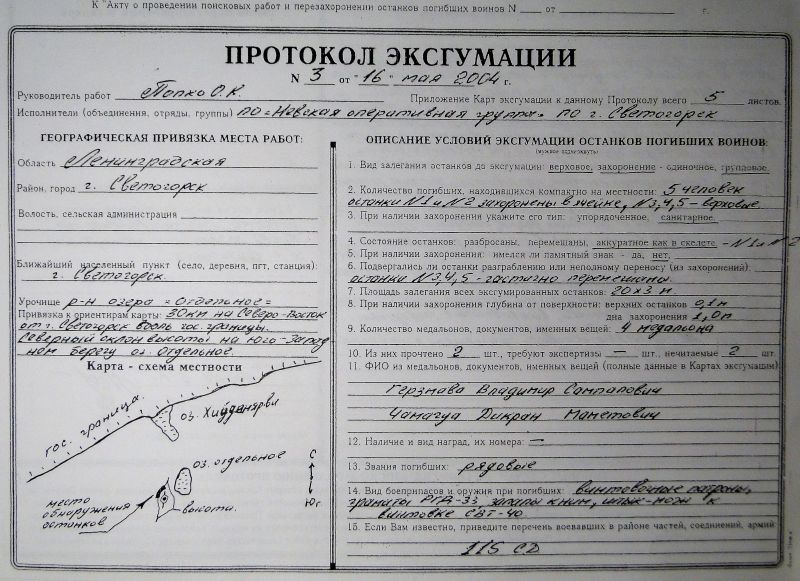 К "Акту о проведении поисковых работ и перезахоронении останков погибших воинов N ___ от ___ г.
ПРОТОКОЛ ЭКСГУМАЦИИ
N 3 от "16" мая 2004 г.
Руководитель работ Попко О.К. Приложение Карт эксгумации к данному Протоколу всего 5 листов.
Исполнители (объединения, отряды, группы) ПО "Невская оперативная группа" ПО г. Светогорск
ГЕОГРАФИЧЕСКАЯ ПРИВЯЗКА МЕСТА РАБОТ:
Область Ленинградская
Район, город г. Светогорск
Волость, сельская администрация
Ближайший населенный пункт (село, деревня, пгт, станция):
г. Светогорск.
Урочище р-н озера =Отдельное=
Привязка к ориентирам карты: 30км на Северо-Восток
от г. Светогорск вдоль гос. границы.
Северный склон высоты на юго-запад
ном берегу оз. Отдельное.
Карта - схема местности
гос. граница.
оз.
оз. отдельное
С
Юг
место
обнаружения
останков
высоты.
ОПИСАНИЕ УСЛОВИЙ ЭКСГУМАЦИИ ОСТАНКОВ ПОГИБШИХ ВОИНОВ:
(нужное подчеркнуть)
1. Вид залегания останков до эксгумации: верховое, захоронение - одиночное, групповое.
2. Количество погибших, находившихся компактно на местности: 5 человек
останки N1 и N2 захоронены в ячейке, N3,4,5 - верховые.
3. При наличии захоронения укажите его тип: упорядоченное, санитарное.
4. Состояние останков: разбросаны, перемешаны, аккуратное как в скелете - N1 и N2
5. При наличии захоронения: имелся ли памятный знак - да, нет.
6. Подвергались ли останки разграблению или неполному переносу (из захоронений):
останки N3,4,5 - частично перемешаны.
7. Площадь залегания всех эксгумированных останков: 20 х 3 м.
8. При наличии захоронения глубина от поверхности: верхних останков 0,1м
дна захоронения 1,0м
9. Количество медальонов, документов, именных вещей: 4 медальона
10. Из них прочтено 2 шт., требуют экспертизы — шт., нечитаемые 2 шт.
11. ФИО из медальонов, документов, именных вещей (полные данные в Картах эксгумации)
Герзмава Владимир
Чамагуа Дикран Маметович
12. Наличие и вид наград, их номера: —
13. Звания погибших: рядовые
14. Вид боеприпасов и оружия при погибших: винтовочные патроны,
гранаты РГД-33, запалы к ним, штык-нож к
винтовке СВТ-40.
15. Если Вам известно, приведите перечень воевавших в районе частей, соединений, армий
115 СД